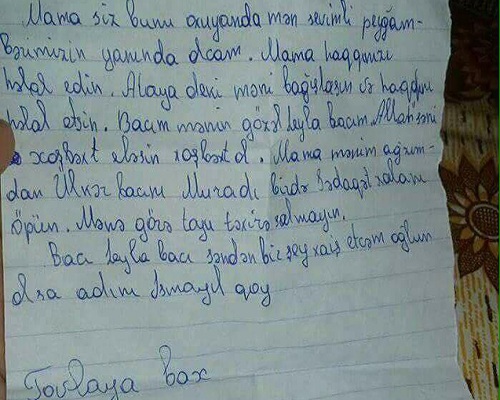 Mama siz bunu oxuyanda mən sevimli peyğəm-
bərimizin yanında olcam. Mama haqqınızı
halal edin. Ataya deki məni bağışlasın və haqqını
halal etsin. Bacım mənim gözəl Leyla bacım Allah səni
xoşbəxt eləsin xoşbəxt ol. Mama mənim ağzım-
dan Ülkər bacını Muradı birdə Sədaqət xalanı
öpün. Mənə görə tayu təxirə salmayın.
Bacı Leyla bacı səndən bir şey xaiş etcəm oğlun
olsa adını İsmayıl qoy
Tovlaya bax